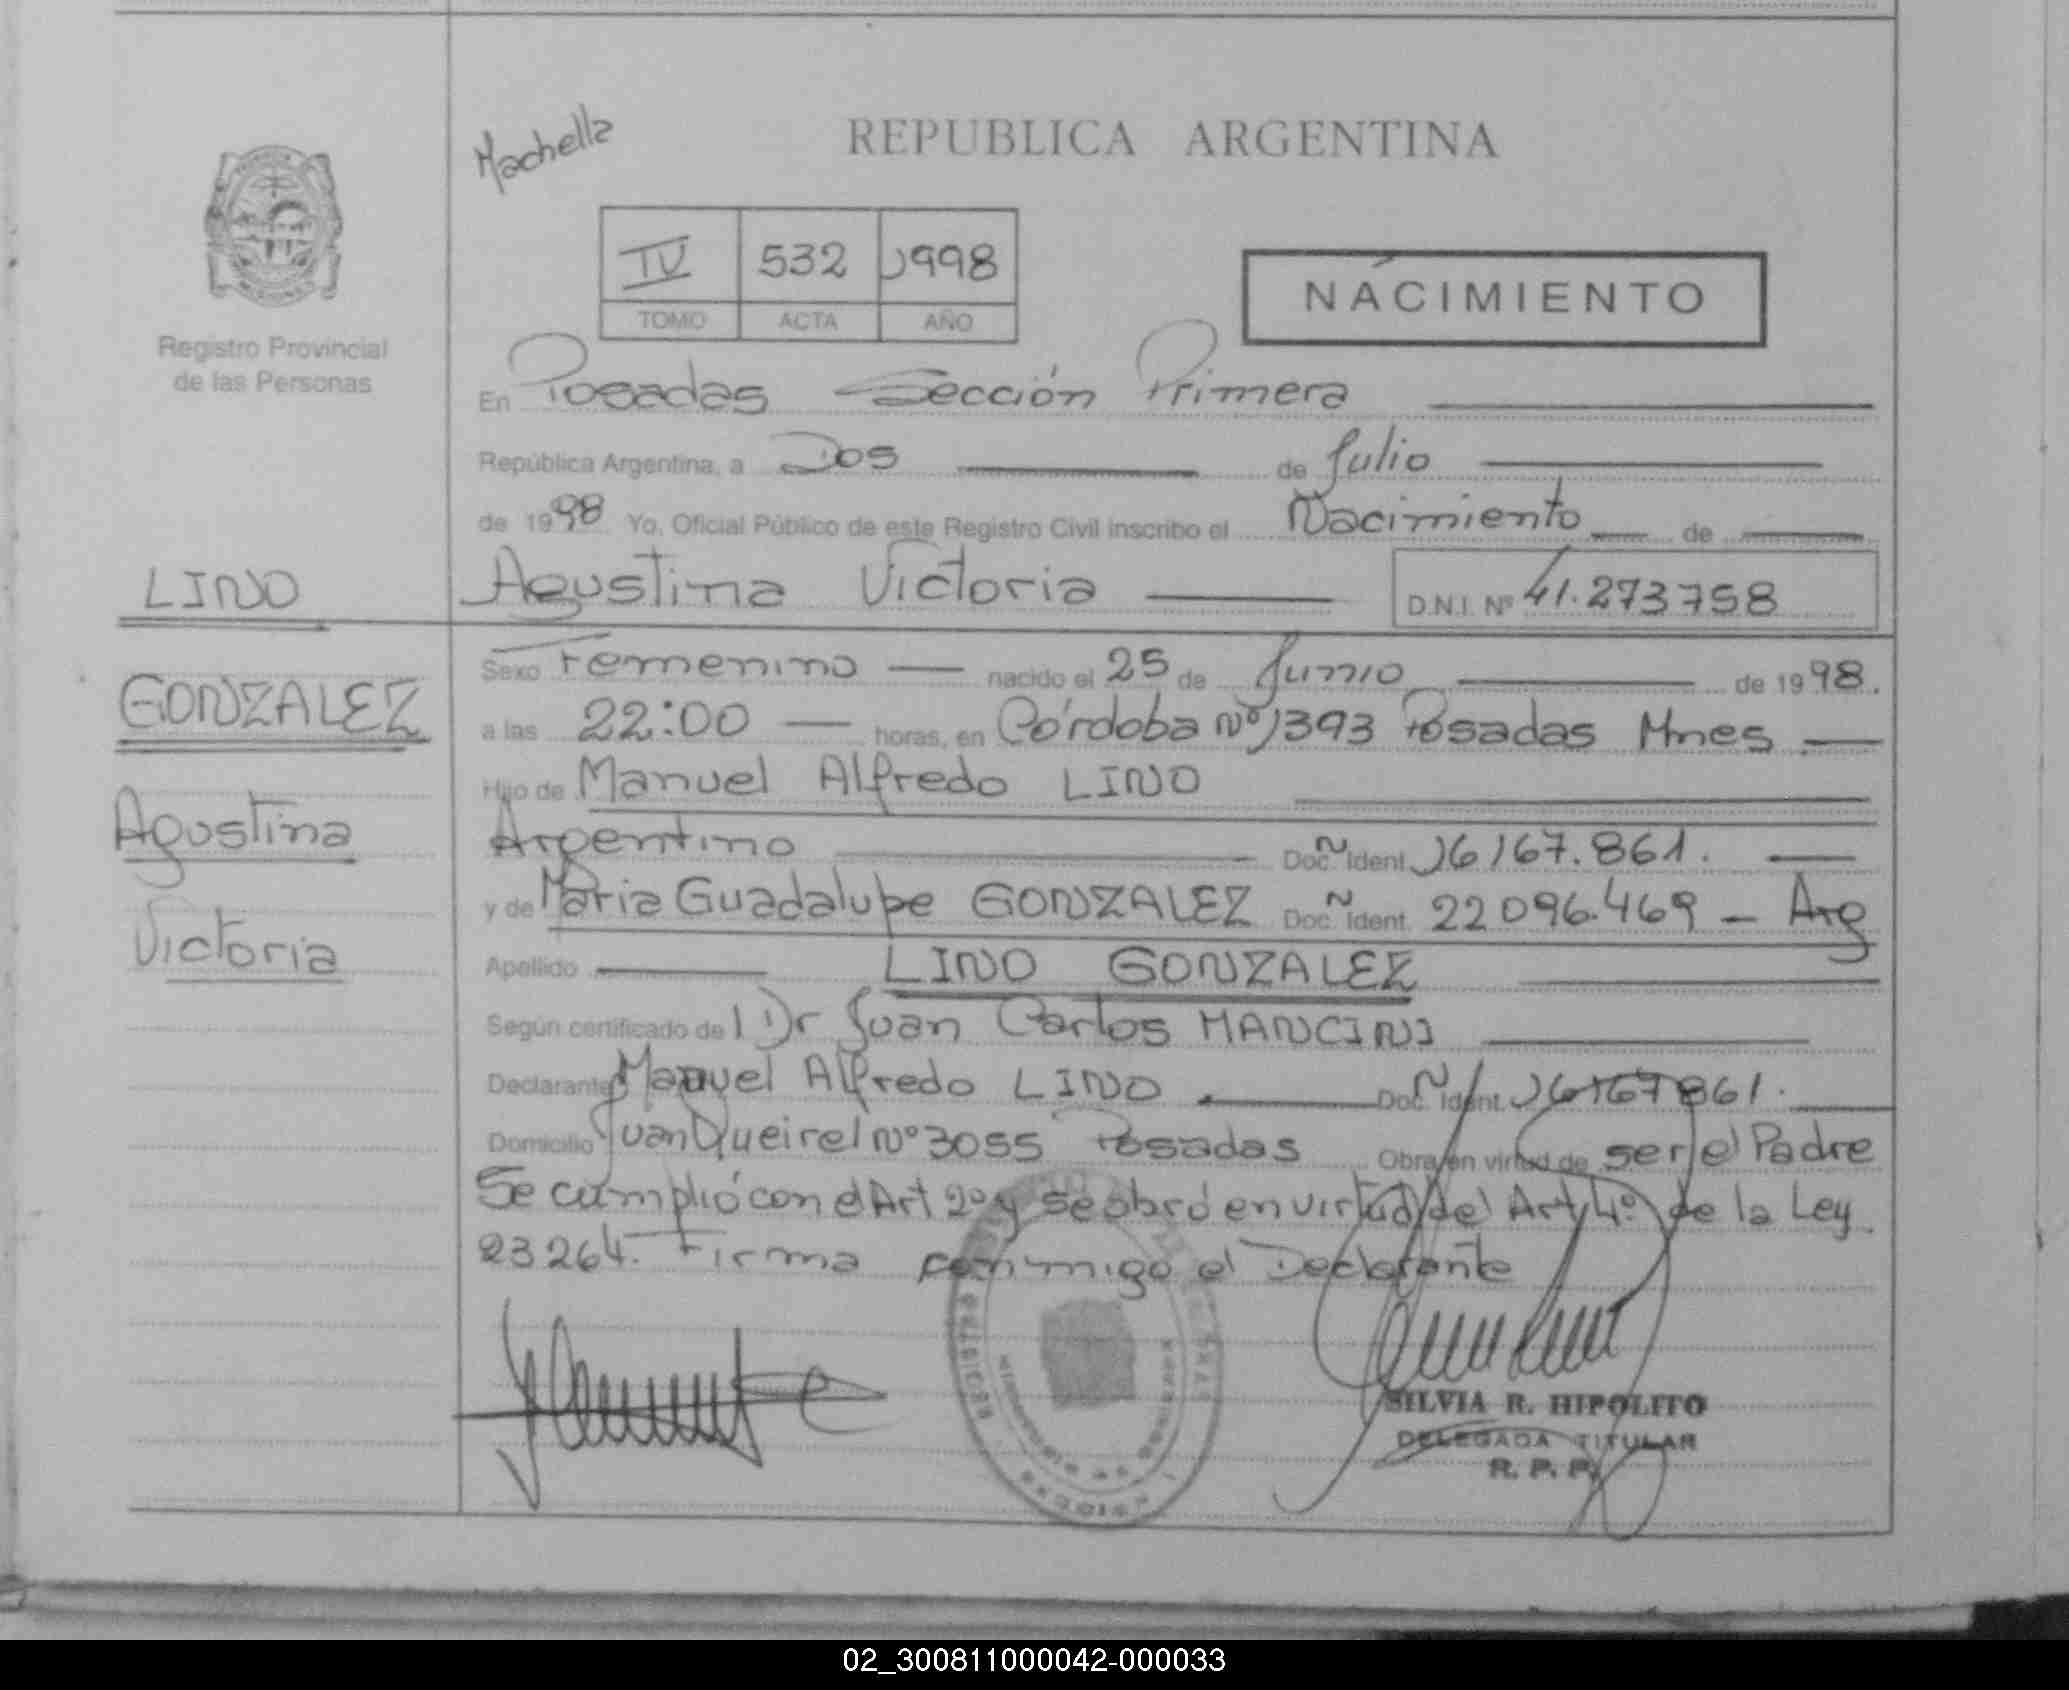 Machella
REPUBLICA ARGENTINA
IV 532 1998
TOMO ACTA AÑO
NACIMIENTO
Registro Provincial
de las Personas
En Posadas Sección Primera
República Argentina, a Dos de Julio
de 1998 Yo, Oficial Público de este Registro Civil inscribo el Nacimiento de
LINO
Agustina Victoria D.N.I. Nº 41.273758
Sexo Femenino nacido el 25 de Junio de 1998.
GONZALEZ
a las 22:00 horas, en Córdoba Nº 1393 Posadas Mnes
Hijo de Manuel Alfredo LINO
Agustina
Argentino Doc. Ident. 16167.861.
y de Maria Guadalupe GONZALEZ Doc. Ident. 22096.469 - Arg
Victoria
Apellido LINO GONZALEZ
Según certificado de Dr Juan Carlos MANCINI
Declarante Manuel Alfredo LINO Doc. Ident. 16167861.
Domicilio Juan Queirel Nº 3055 Posadas Obra en virtud de ser el Padre
Se cumplió con el Art 2º y se obró en virtud del Art 4º de la Ley
23264. Firma conmigo el Declarante
SILVIA R. HIPOLITO
DELEGADA TITULAR
R. P. P.
02_300811000042-000033